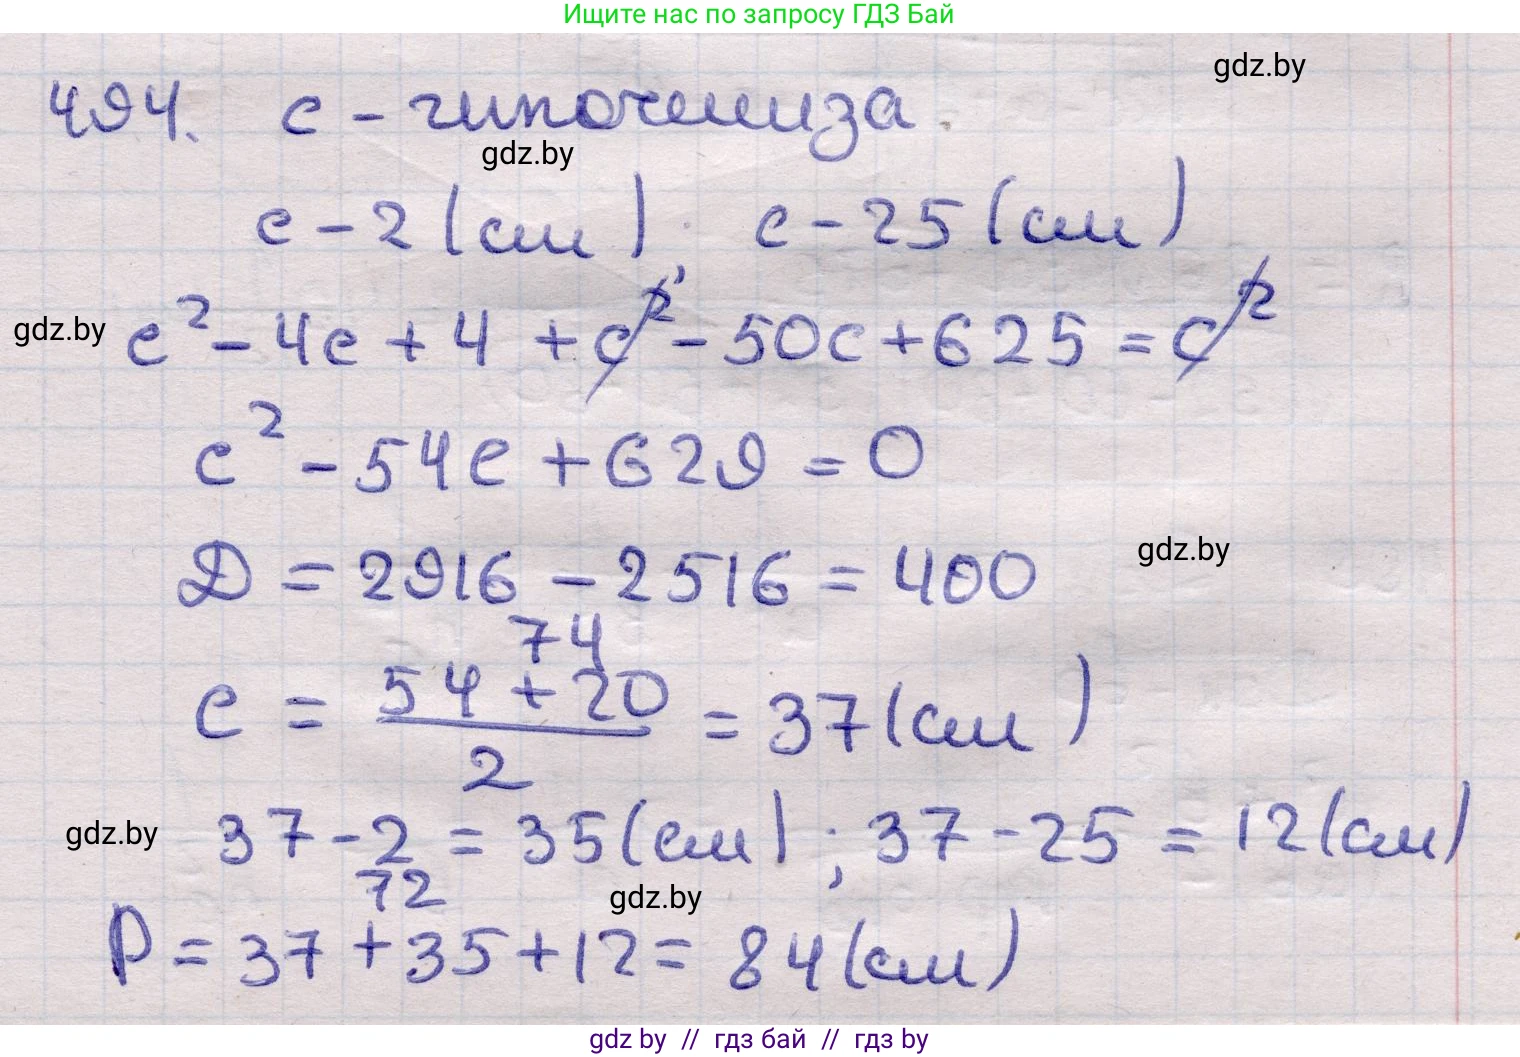 Ищите нас по запросу ГДЗ Бай
gdz.by
494. c - гипотенуза.
gdz.by
c - 2 (см); c - 25 (см)
gdz.by
c² - 4c + 4 + c² - 50c + 625 = c²
c² - 54c + 629 = 0
D = 2916 - 2516 = 400
gdz.by
74
c = (54 + 20)/2 = 37 (см)
gdz.by
37 - 2 = 35 (см); 37 - 25 = 12 (см)
72
gdz.by
P = 37 + 35 + 12 = 84 (см)
gdz by // гдз бай // гдз by